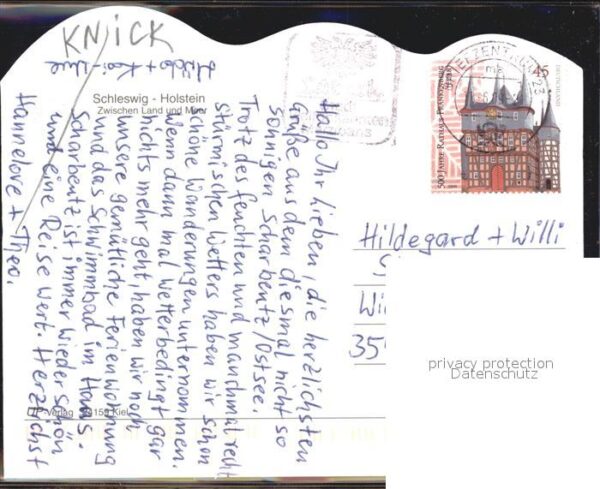 KNICK
Schleswig - Holstein
Zwischen Land und Meer
Hallo Ihr Lieben, die herzlichsten
Grüße aus dem diesmal nicht so
sonnigen Scharbeutz/Ostsee.
Trotz des feuchten und manchmal recht
stürmischen Wetters haben wir schon
schöne Wanderungen unternommen.
Wenn dann mal wetterbedingt gar
nichts mehr geht, haben wir noch
unsere gemütliche Ferienwohnung
und das Schwimmbad im Haus.
Scharbeutz ist immer wieder schön
und eine Reise wert. Herzlichst
Hannelore + Theo.
500 JAHRE RATHAUS FRANKENBERG
DEUTSCHLAND
BRIEFZENTRUM
23
Hildegard + Willi
Wi
35
privacy protection
Datenschutz
UP-Verlag 24159 Kiel